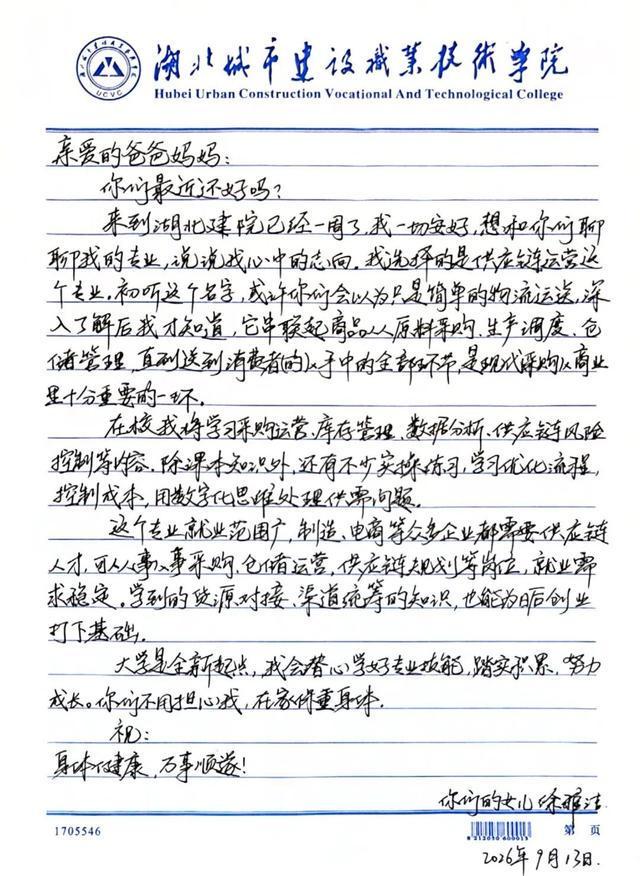 湖北城市建设职业技术学院
Hubei Urban Construction Vocational And Technological College
UCVC
亲爱的爸爸妈妈：
你们最近还好吗？
来到湖北建院已经一周了，我一切安好，想和你们聊
聊我的专业，说说我心中的志向。我选择的是供应链运营这
个专业。初听这个名字，或许你们会以为只是简单的物流运送，深
入了解后我才知道，它串联起商品从原料采购、生产调度、仓
储管理，直到送到消费者的手中的全部环节，是现代采购商业
里十分重要的一环。
在校我将学习采购运营、库存管理、数据分析、供应链风险
控制等内容。除课本知识外，还有不少实操练习，学习优化流程，
控制成本，用数字化思维处理供需问题。
这个专业就业范围广，制造、电商等众多企业都需要供应链
人才，可从事采购、仓储运营，供应链规划等岗位，就业需
求稳定。学到的货源对接、渠道统筹的知识，也能为日后创业
打下基础。
大学是全新起点，我会潜心学好专业技能，踏实积累，努力
成长。你们不用担心我，在家保重身体。
祝：
身体健康，万事顺遂！
你们的女儿徐
1705546
8 212050 600013
第 页
2026年9月13日.